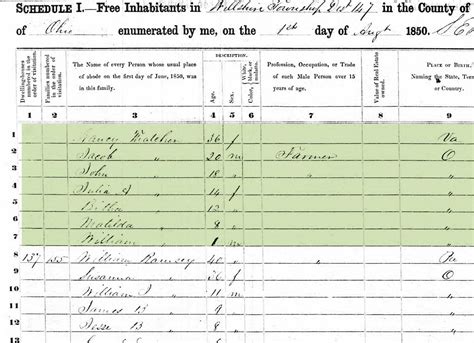 SCHEDULE I.—Free Inhabitants in Willshire Township Dist 147 in the County
of Ohio enumerated by me, on the 1st day of Augt 1850.
Dwelling-houses numbered in the order of visitation.
Families numbered in the order of visitation.
The Name of every Person whose usual place of abode on the first day of June, 1850, was in this family.
DESCRIPTION.
Age.
Sex.
White, black, or mulatto.
Profession, Occupation, or Trade of each Male Person over 15 years of age.
Value of Real Estate owned.
PLACE OF BIRTH.
Naming the State, Territory or Country.
1 2 3 4 5 6 7 8 9
1 Nancy Thatcher 36 f Va
2 Jacob " 20 m Farmer O
3 John " 18 " " "
4 Julia A " 14 f "
5 " 12 " "
6 Matilda " 8 " "
7 William " 1 m "
8 137 William Ramsey 40 " " Pa
9 Susanna " 36 f O
10 William " 11 m "
11 James B " 9 " "
12 Jesse B " 8 " "
13